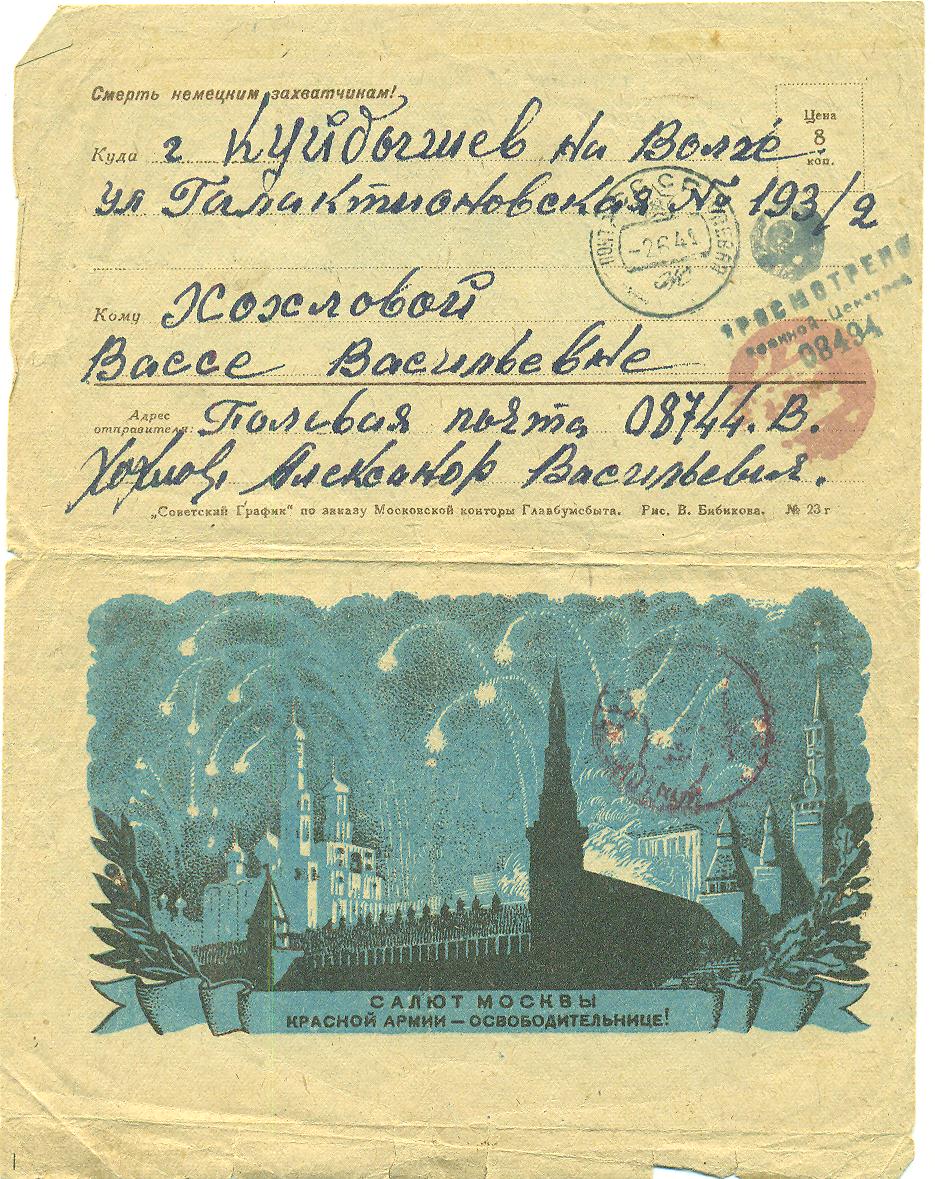 Смерть немецким захватчикам!
Цена
8
коп.
Куда г Куйбышев на Волге
ул Галактионовская № 193/2
-2.6.4
ПРОСМОТРЕНО
Военной Цензурой
08494
Кому Хохловой
Вассе Васильевне
Адрес
отправителя: Полевая почта 08744.В.
Хохлов, Александр Васильевич.
„Советский График“ по заказу Московской конторы Главбумсбыта. Рис. В. Бибикова. № 23 г
САЛЮТ МОСКВЫ
КРАСНОЙ АРМИИ — ОСВОБОДИТЕЛЬНИЦЕ!